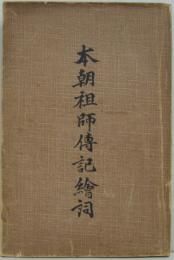 本朝祖師傳記繪詞